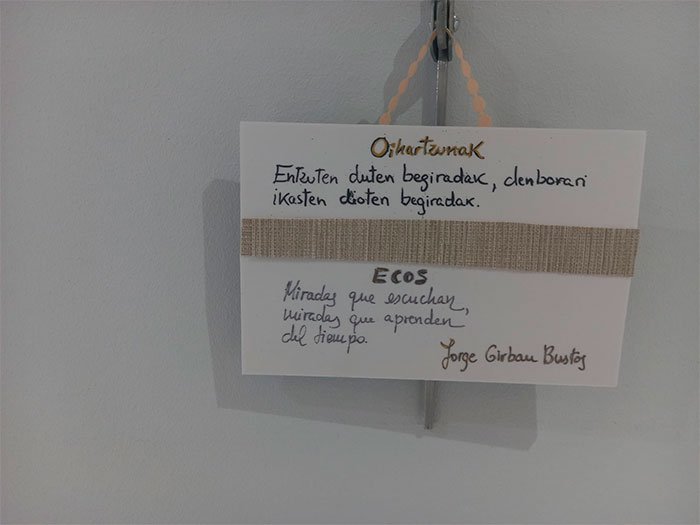 Oihartzunak
Entzuten duten begiradak, denborari
ikasten dioten begiradak.
ECOS
Miradas que escuchan,
miradas que aprenden
del tiempo.
Jorge Girbau Bustos